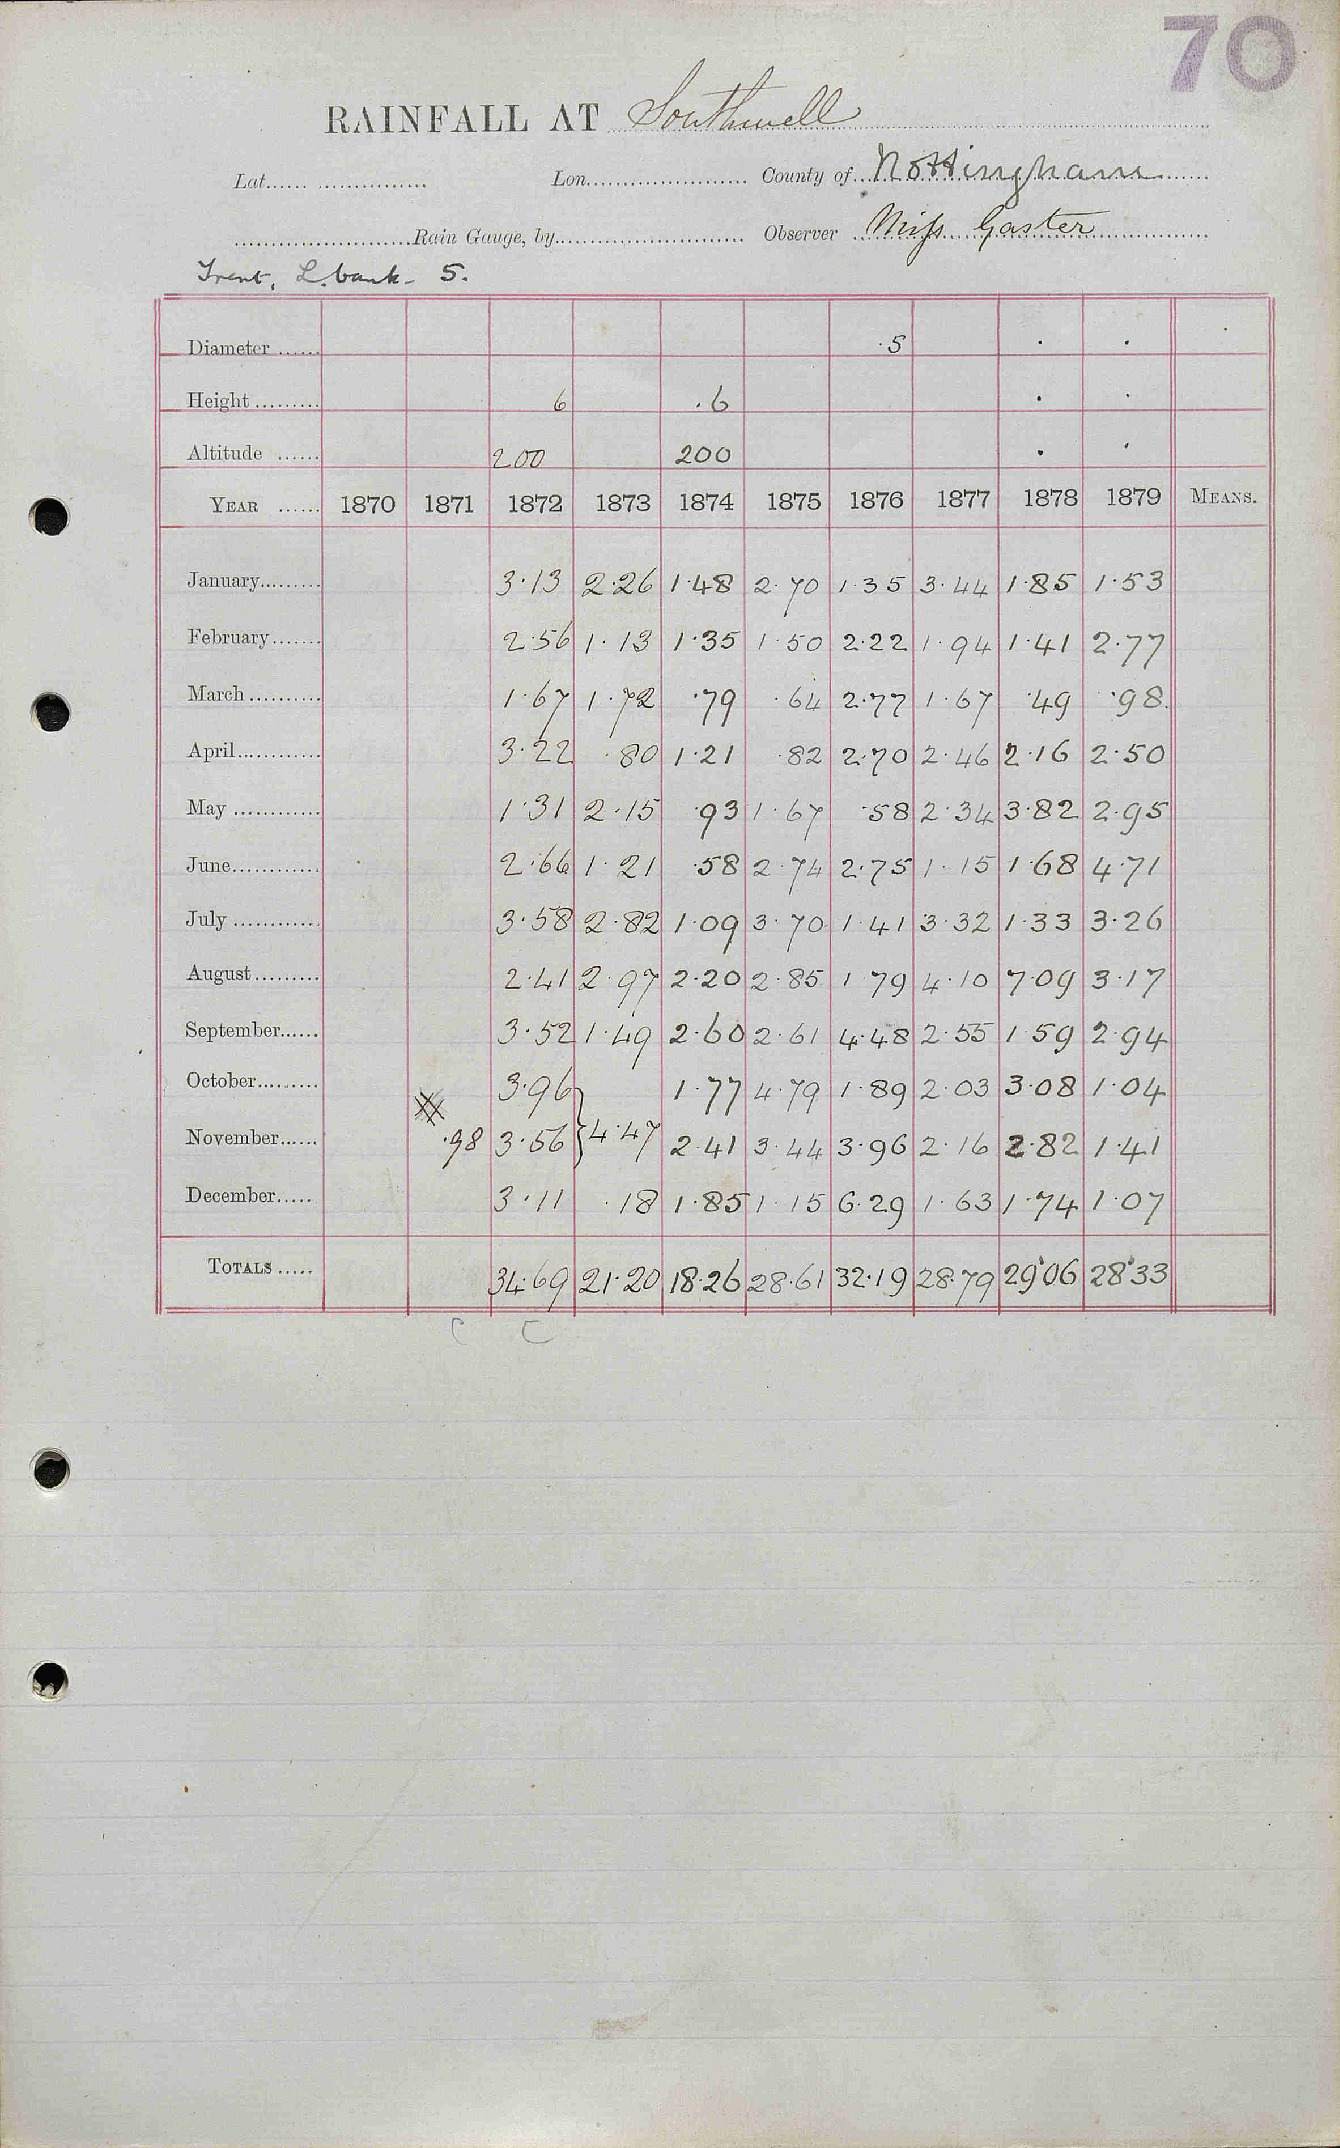 70
RAINFALL AT Southwell
Lat. Lon. County of Nottingham
Rain Gauge, by Observer Miss Gaster
Trent, L. bank - 5.
Diameter ·5
Height 6 ·6
Altitude 200 200
YEAR 1870 1871 1872 1873 1874 1875 1876 1877 1878 1879 MEANS.
January 3·13 2·26 1·48 2·70 1·35 3·44 1·85 1·53
February 2·56 1·13 1·35 1·50 2·22 1·94 1·41 2·77
March 1·67 1·72 ·79 ·64 2·77 1·67 ·49 ·98
April 3·22 ·80 1·21 ·82 2·70 2·46 2·16 2·50
May 1·31 2·15 ·93 1·67 ·58 2·34 3·82 2·95
June 2·66 1·21 ·58 2·74 2·75 1·15 1·68 4·71
July 3·58 2·82 1·09 3·70 1·41 3·32 1·33 3·26
August 2·41 2·97 2·20 2·85 1·79 4·10 7·09 3·17
September 3·52 1·49 2·60 2·61 4·48 2·55 1·59 2·94
October 3·96 1·77 4·79 1·89 2·03 3·08 1·04
November ·98 3·56 } 4·47 2·41 3·44 3·96 2·16 2·82 1·41
December 3·11 ·18 1·85 1·15 6·29 1·63 1·74 1·07
TOTALS 34·69 21·20 18·26 28·61 32·19 28·79 29·06 28·33
C C